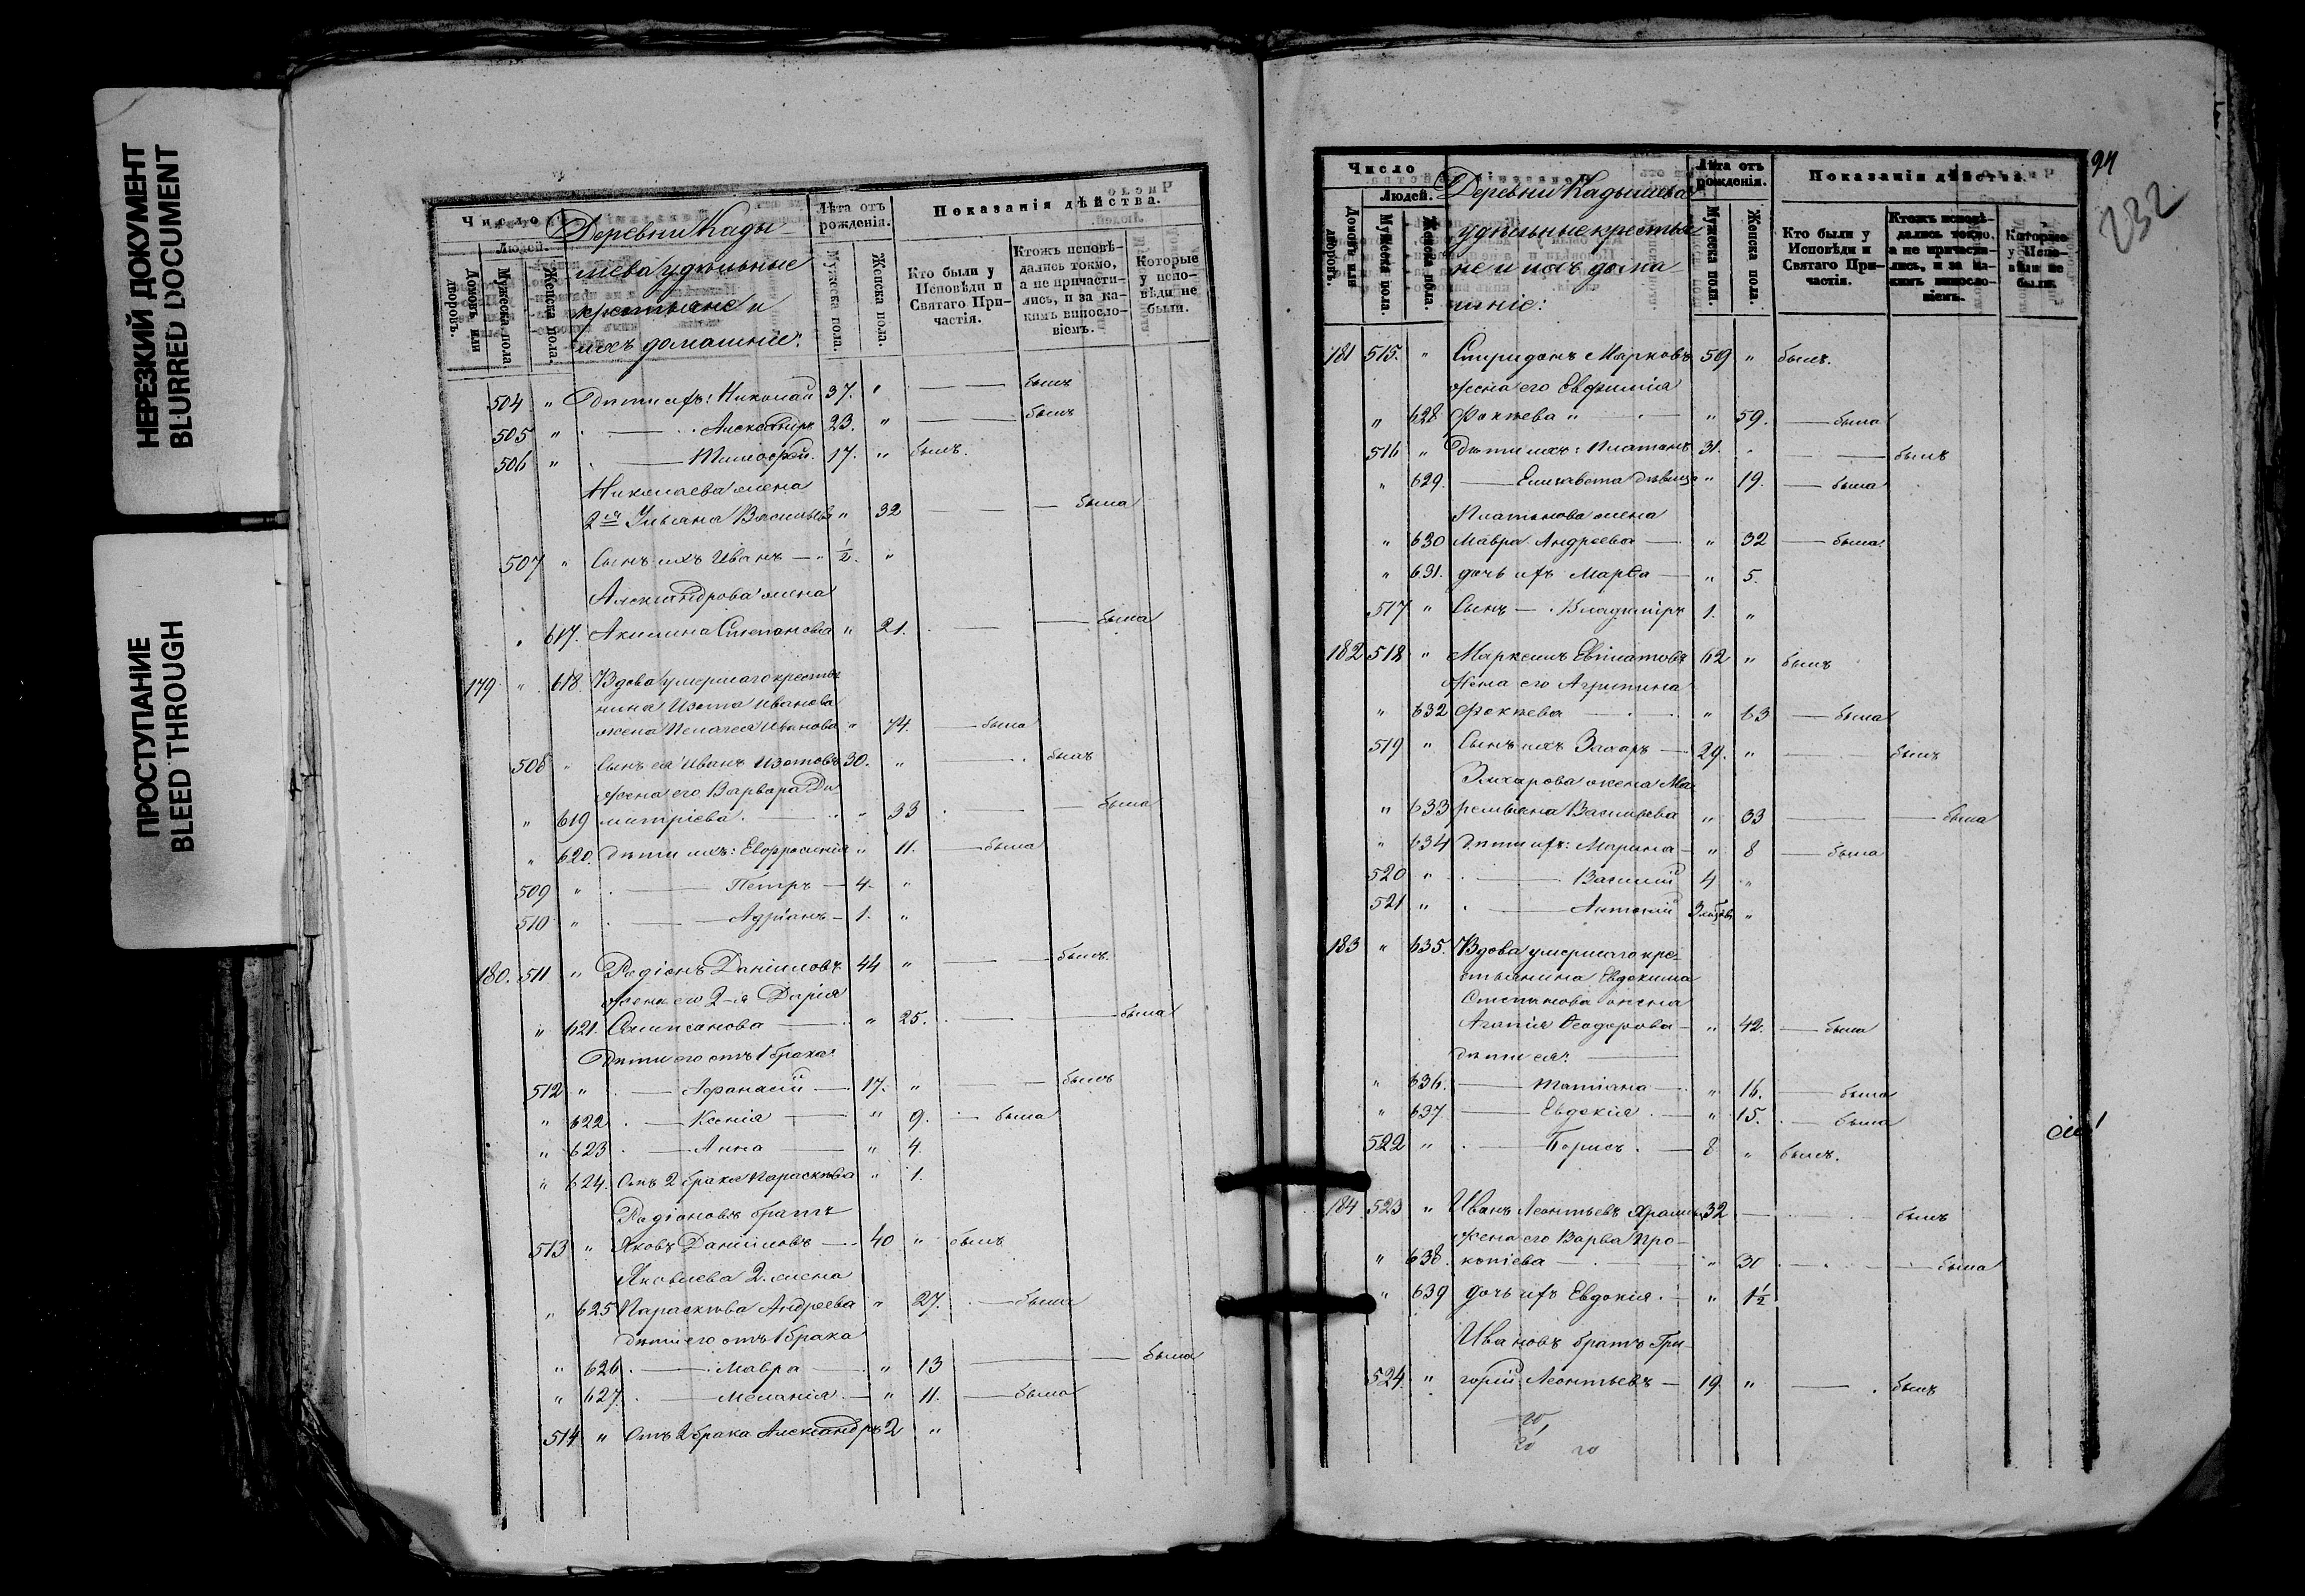 НЕРЕЗКИЙ ДОКУМЕНТ
BLURRED DOCUMENT
ПРОСТУПАНИЕ
BLEED THROUGH
Число
Людей.
Домовъ или дворовъ.
Мужеска пола
Женска пола.
Деревни Кады-
шева удѣльные
крестьяне и
ихъ домашніе:
Лѣта отъ рожденія.
Мужеска пола.
Женска пола.
Показанія дѣйства.
Кто были у Исповѣди и Святаго При-частія.
Ктожъ исповѣ-дались токмо, а не причасти-лись, и за ка-кимъ виносло-віемъ.
Которые у испо-вѣди не были.
504 " Дѣти ихъ: Николай 37. " былъ
505 " Александръ 23. " былъ
506 " Тимофей 17. " былъ.
Николаева жена
2я Ульяна Васильева " 32 была
507 " Сынъ ихъ Иванъ 1/2. "
Александрова жена
" 617. Акилина Степанова " 21. была
179 " 618. Вдова умершаго крестья
нина Изота Иванова
жена Пелагея Иванова " 74. была
508 " Сынъ ея Иванъ Изотовъ 30. " былъ
Жена его Варвара Ди
" 619 митріева " 33 была
" 620. Дѣти ихъ: Евфросинія " 11. была
509 " Петръ 4. "
510 " Адріанъ 1. "
180. 511 " Родіонъ Даніиловъ 44 " былъ.
Жена его 2-я Дарія
" 621. " 25. была
Дѣти его отъ 1 брака
512 " Афанасій 17. " былъ
" 622 Ксенія " 9. была
" 623 Анна " 4.
" 624. Отъ 2 брака Параскѣва " 1.
Родіоновъ братъ
513 " Яковъ Даніиловъ 40 " былъ
Яковлева 2. жена
" 625 Параскѣва Андреева " 27. была
дѣти его отъ 1 брака
" 626 Мавра " 13 была
" 627. Меланія " 11. была
514 " Отъ 2 брака Александръ 2 "
94
232
Число
Людей.
Домовъ или дворовъ.
Мужеска пола
Женска пола.
Деревни Кадышева
удѣльные крестья
не и ихъ дома-
шніе:
Лѣта отъ рожденія.
Мужеска пола.
Женска пола.
Показанія дѣйства.
Кто были у Исповѣди и Святаго При-частія.
Ктожъ исповѣ-дались токмо, а не причасти-лись, и за ка-кимъ винослo-віемъ.
Которые у Испо-вѣди не были.
181 515. " Спиридонъ Марковъ 59 " былъ.
жена его Евфимія
" 628 Фокѣева " " 59. была
516 " Дѣти ихъ: Платонъ 31. " былъ
" 629. Елизавета дѣвица " 19. была
Платонова жена
" 630 Мавра Андреева " 32 была.
" 631. дочь ихъ Марѳа " 5.
517 " Сынъ Владиміръ 1. "
182 518 " 62 " былъ
Жена его Агрипина
" 632 Фокѣева " 63 была
519 " Сынъ ихъ Захаръ 29. " былъ
Захарова жена Ма
" 633 ремьяна Васильева " 33 была
" 634 Дѣти ихъ: Марина " 8 была
520 " Василій 4 "
521 " Антоній "
183 " 635. Вдова умершаго кре-
стьянина Евдокима
Степанова жена
Агапія Ѳеодорова " 42. была
дѣти ея:
" 636. Татіана " 16. была
" 637 Евдокія " 15. была
522 " Борисъ 8 " былъ.
184 523 " Иванъ Леонтьевъ 32 былъ
жена его Варва Про-
" 638. копіева " 30 была
" 639 дочь ихъ Евдокія " 1 1/2
Ивановъ братъ Гри-
524. " горій Леонтьевъ 19 " былъ